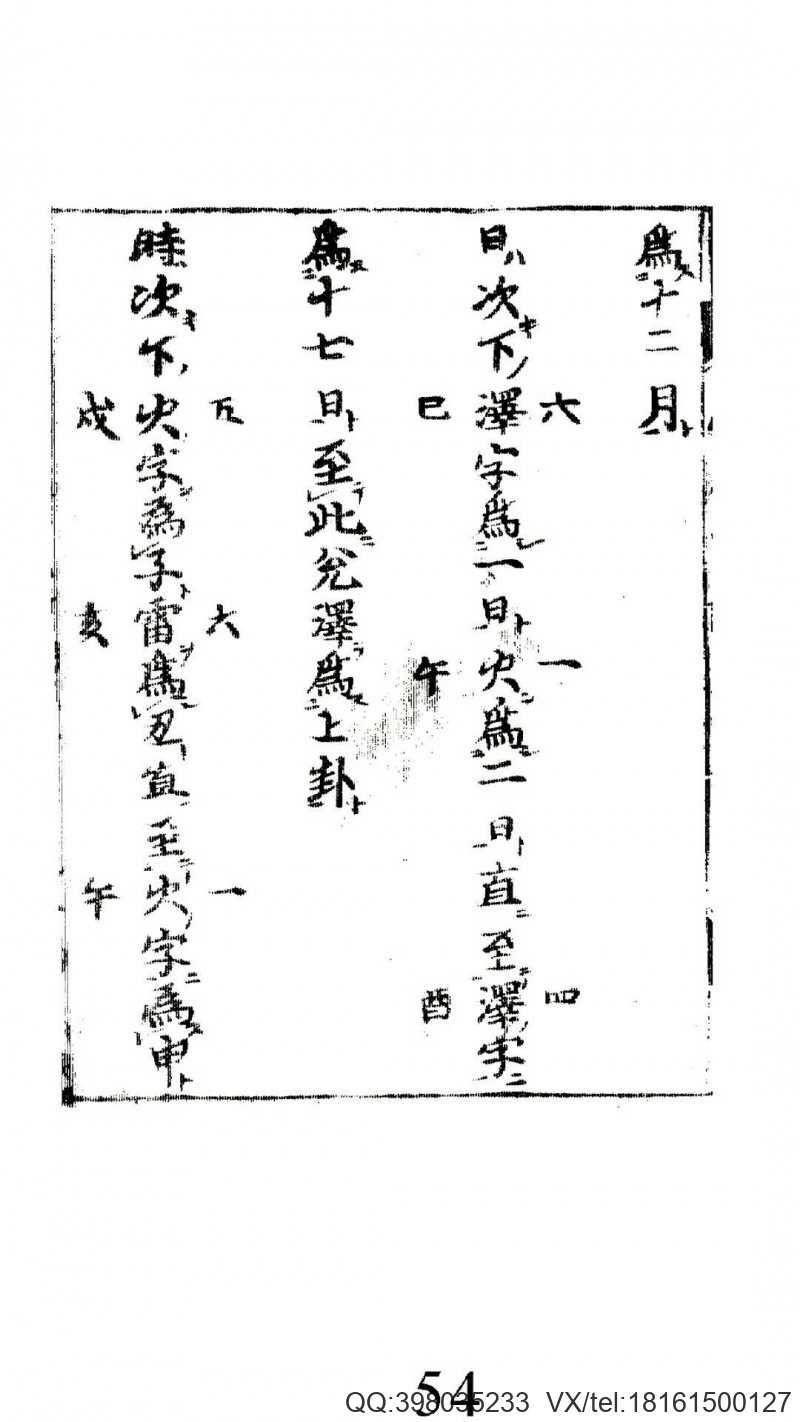 爲十二月
六 一 四
日次下澤字爲一日火爲二日直至澤字
巳 午 酉
爲十七日至此兌澤爲上卦
五 六 一
時次下火字爲子雷爲丑直至火字爲申
戌 亥 午
54
QQ:398035233 VX/tel:18161500127